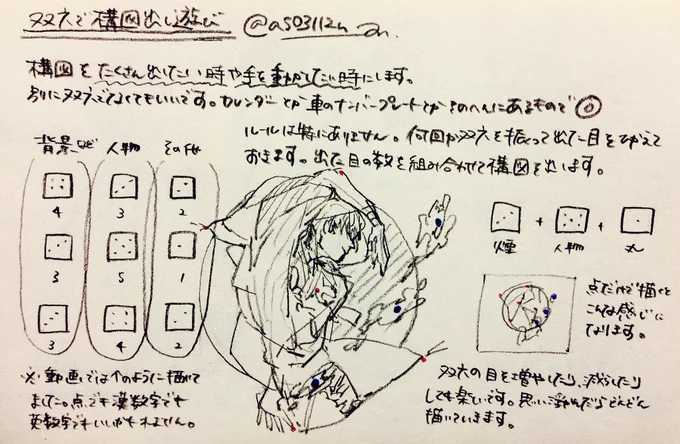 双六で構図出し遊び @aso3112n
構図をたくさん出したい時や手を動かしたい時にします。
別に双六でなくてもいいです。カレンダーとか車のナンバープレートとかそのへんにあるもので◎
ルールは特にありません。何回か双六を振って出た目をひかえて
おきます。出た目の数を組み合わせて構図を出します。
背景など 人物 その他
4 3 2
3 5 1
3 4 2
※動画では↑のように描いて
ました。点でも漢数字でも
英数字でもいいかもれません。
+ +
煙 人物 丸
点だけで描くと
こんな感じに
なります。
双六の目を増やしたり、減らしたり
しても楽しいです。思い浮んだらどんどん
描いていきます。